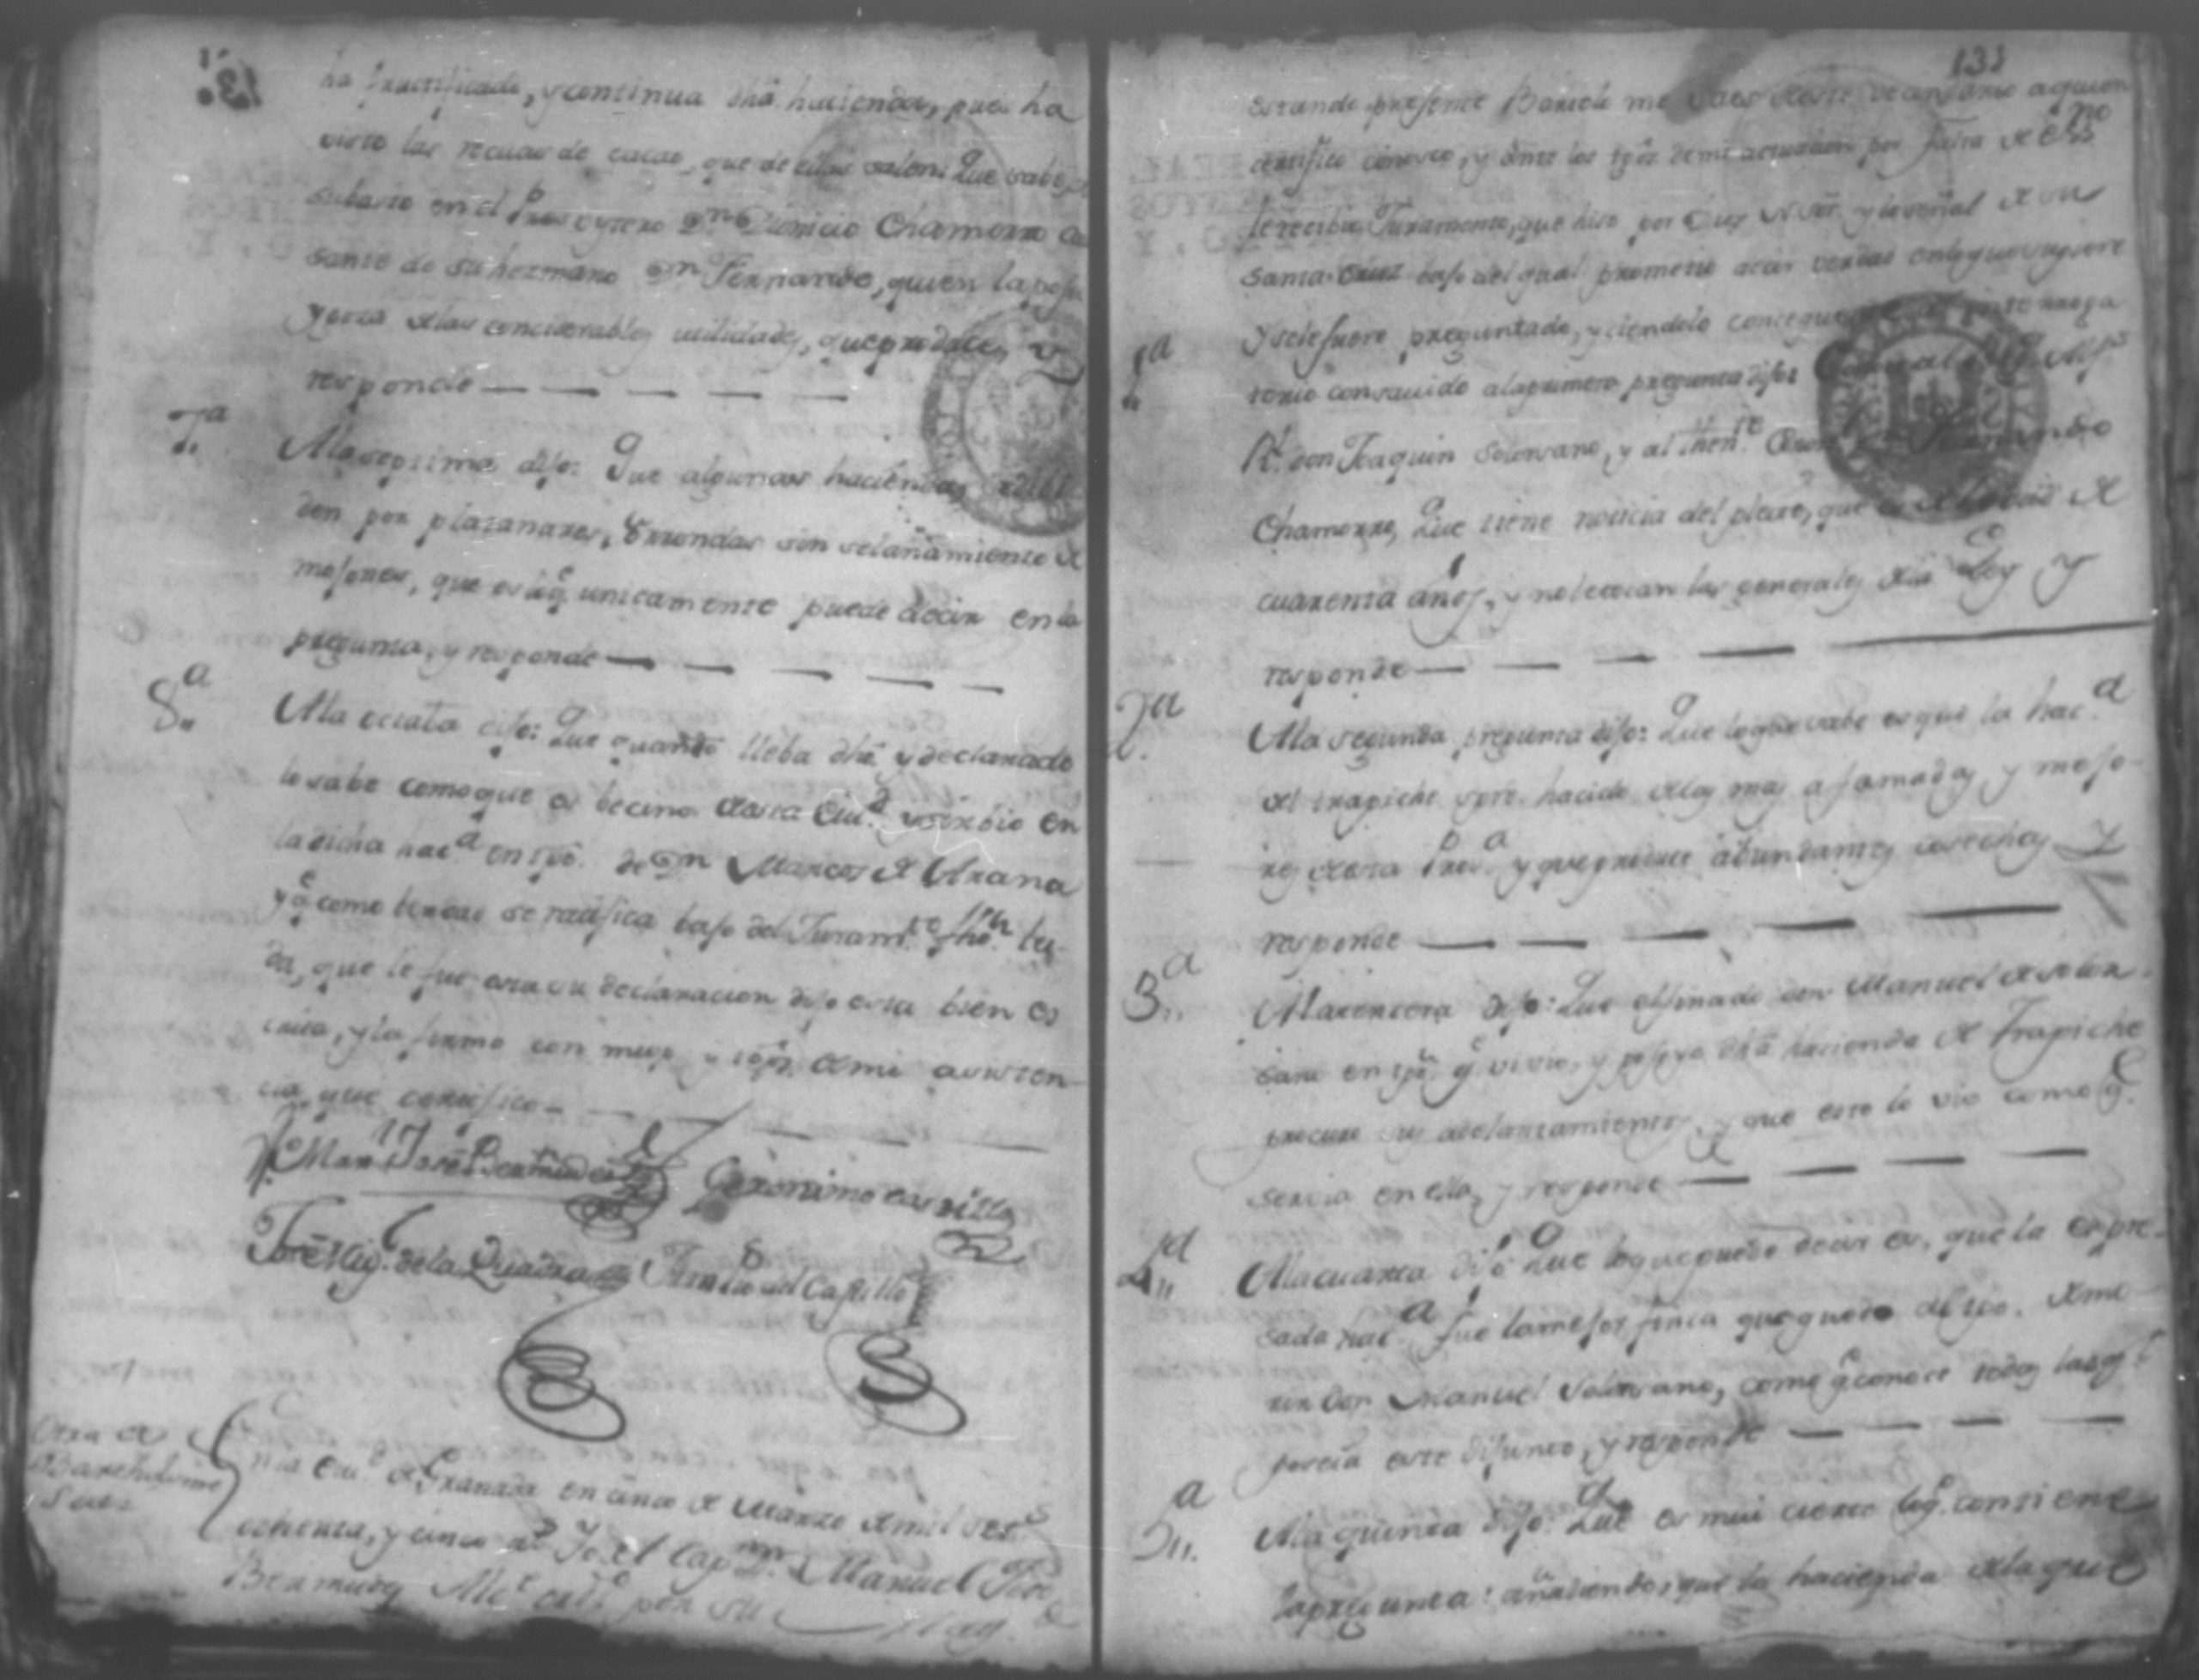 ha fructificado, y continua dhã hacienda, pues ha
visto las recuas de cacao, que de ellas salen: Que sabe
subasto en el Presvytero Dn. Dionicio Chamorro
de su hermano Dn. Fernando, quien la pose
y goza de las conciderables utilidades, que produce, y
responde
7.a
A la septima dijo: Que algunas haciendas
den por platanares, errondas sin señalamiento de
mojones, que es lo q.e unicamente puede decir en la
pregunta, y responde
8.a
A la octaba dijo: Que quanto lleba dhõ y declarado
lo sabe como que es becino de esta Ciu.d y sirbio en
la dicha hac.da en tpõ. de Dn. Marcos de Urana
y q.e como berdad se ratifica bajo del Juram.to fhõ. lei
da, que le fue esta su declaracion dijo esta bien es
crita, y la firmo con migo y tgõs. de mi asisten
cia, que certifico
Man.l Jose Bermudez
Geronimo Castillo
José Mig.l de la Quadra
del Castillo
Otra de
Bartholome
Saes
En la Ciu.d de Granada en cinco de Marzo de mil set.s
ochenta, y cinco a.s Yo el Cap.n Dn. Manuel Jose
Bermudez Alc.e ord.o por su Mag.
131
estando presente me de este becindario a quien
certifico conosco, y ante los tgõs. de mi actuacion por falta de Ess.no
le recibi Juramento, que hiso por Dios N. Sor. y la señal de su
Santa Cruz bajo del qual prometio decir verdad en lo que supiere
1.a
y se le fuere preguntado, y ciendolo interroga
torio con sauido a la primera pregunta dijo:
R.l don Joaquin Solorsano, y al then.te Don Fernando
Chamorro, Que tiene noticia del pleito, que es de edad de
cuarenta años, y no le tocan las generales de la Ley y
responde
2.a
A la segunda pregunta dijo: Que lo que sabe es que la hac.da
del trapiche spre. ha cido de las mas afamadas, y mejo-
res de esta Prov.a y que produce abundantes cosechas, y
responde
3.a
A la tercera dijo: Que el finado don Manuel de Solor-
sano en tpõ. q.e vivio, y poseyo dhã hacienda de Trapiche
procuro sus adelantamientos, y que esto lo vio como q.e
servia en ella, y responde
4.a
A la cuarta dijo Que lo que puede decir es, que la expre-
sada hac.da fue la mejor finca que quedo del
Don Manuel Solorsano, como q.e conoce todas las q.e
poseia este difunto, y responde
5.a
A la quinta dijo: Que es mui cierto lo q.e contiene
la pregunta: añadiendo, que la hacienda de la que